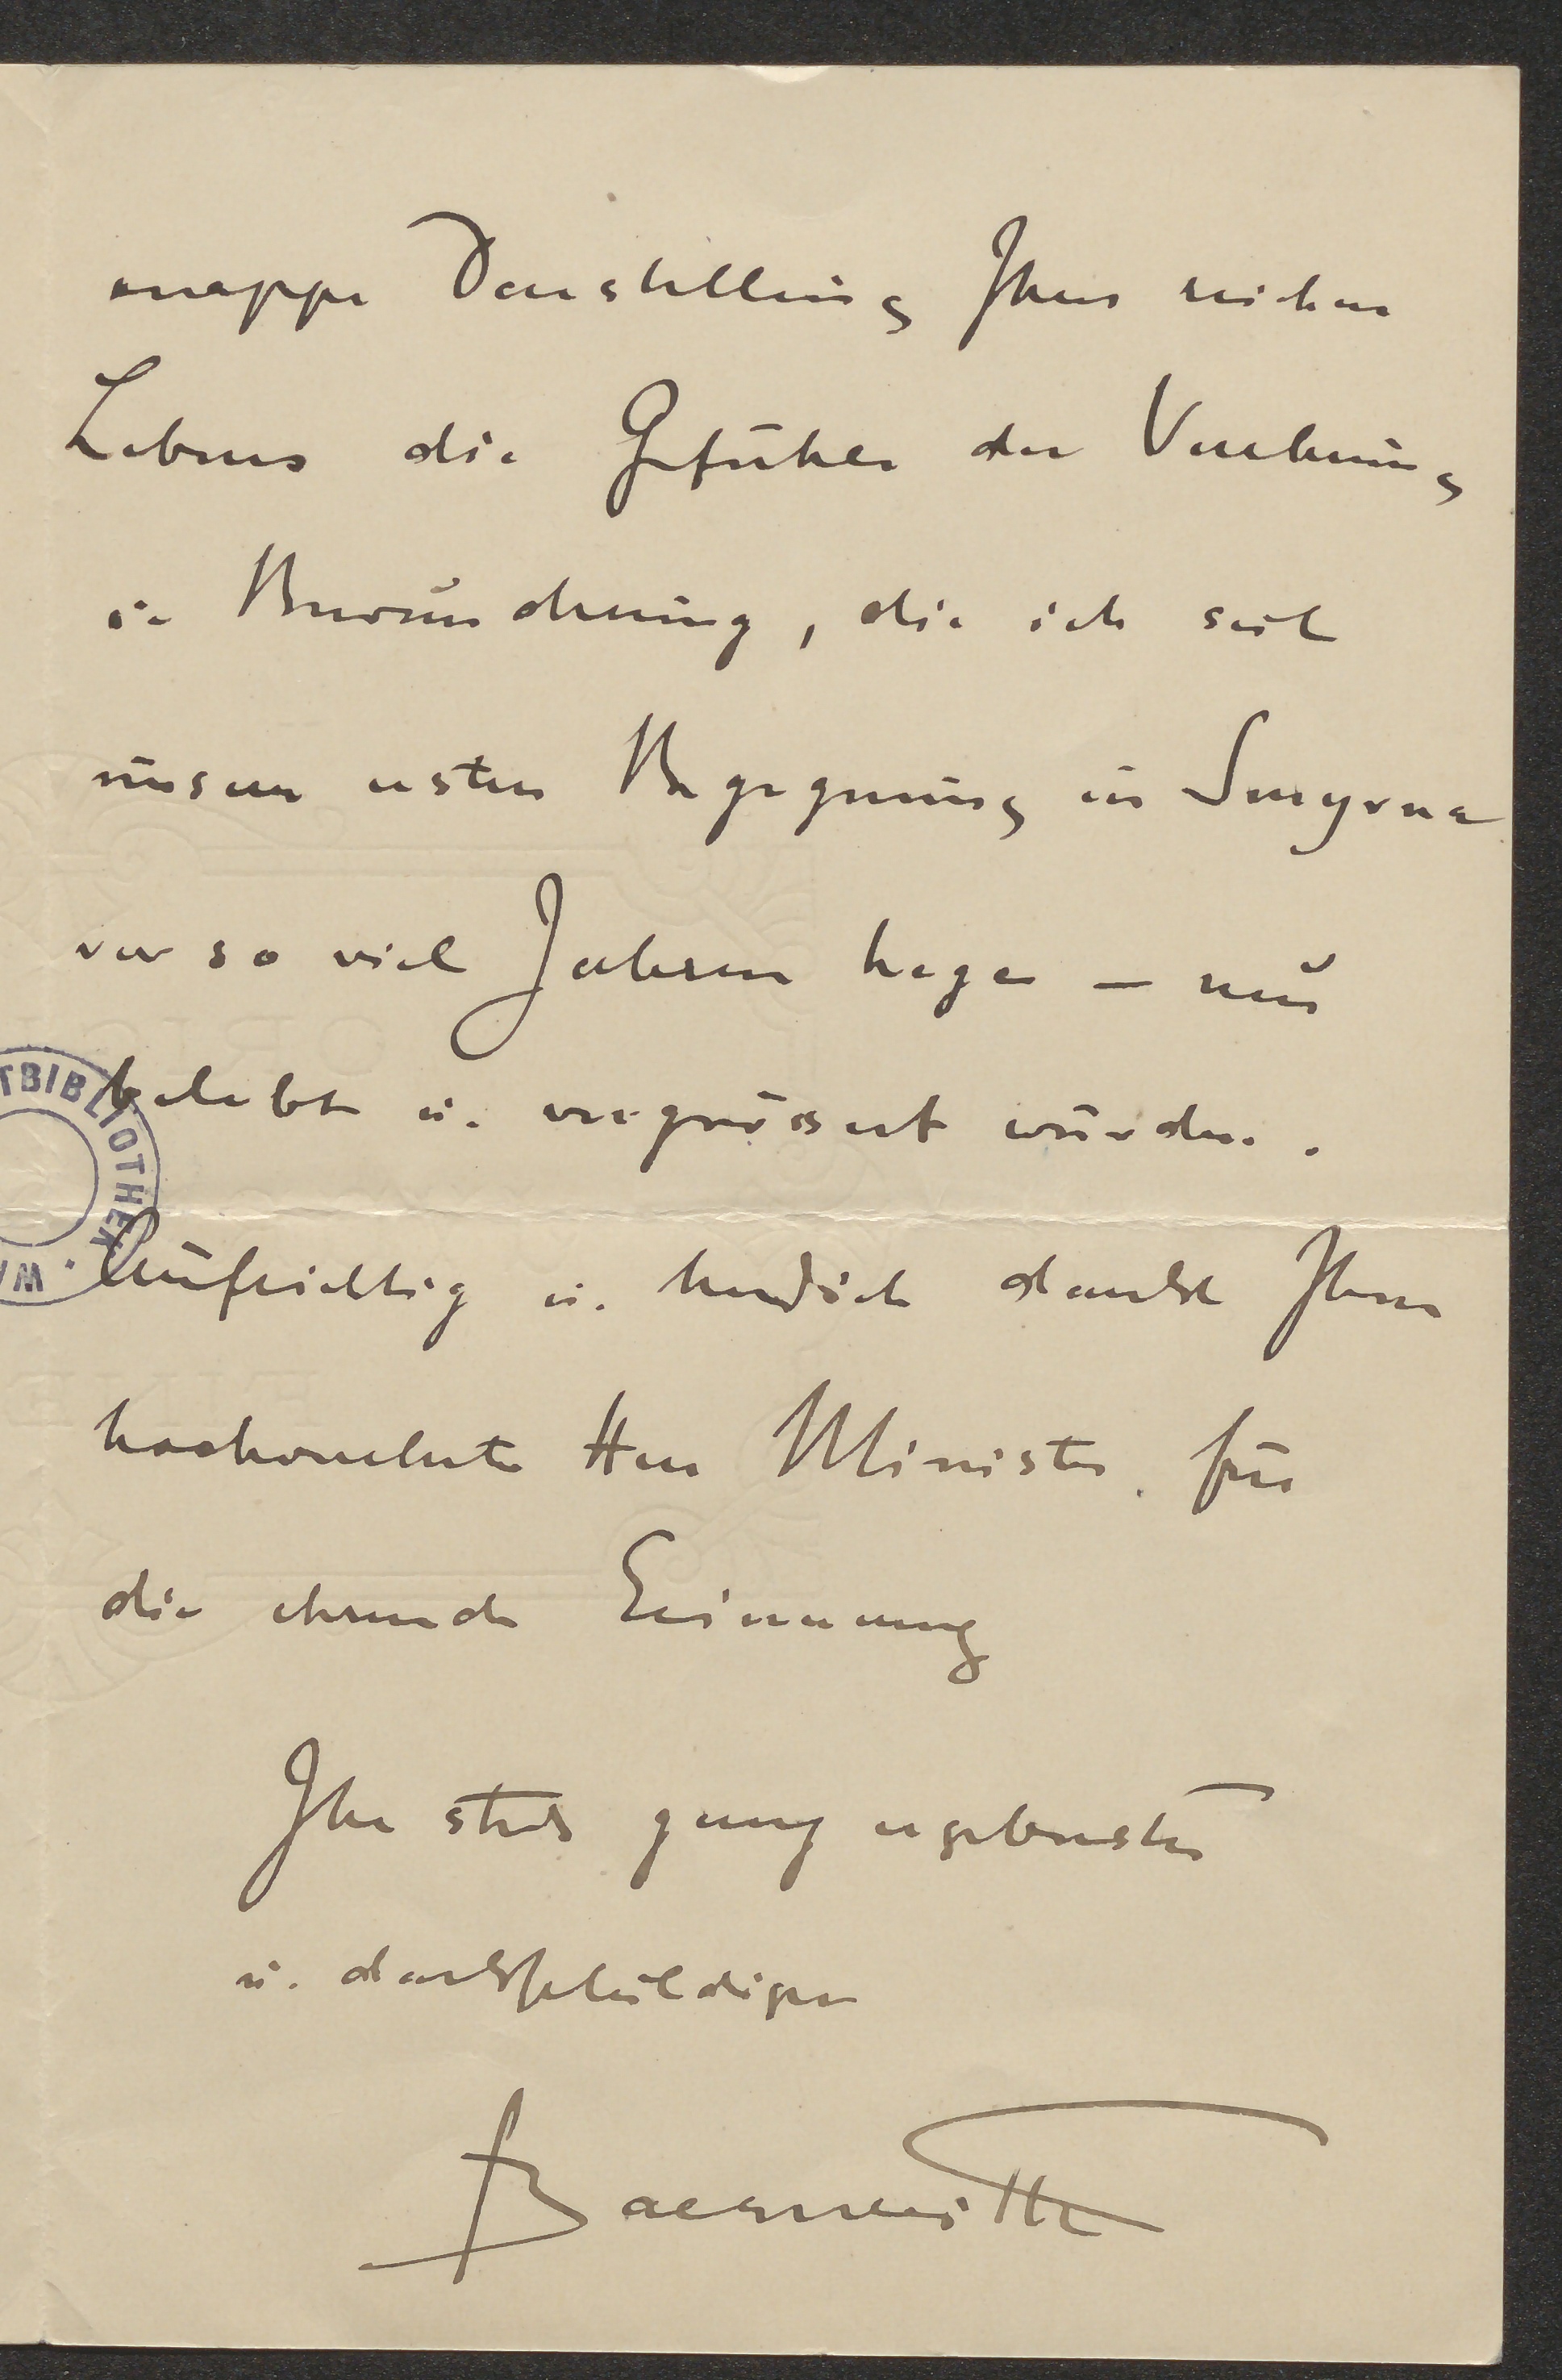 knappe Darstellung Ihres reichen
Lebens die Gefühle der Verehrung
u. Bewunderung, die ich seit
unserer ersten Begegnung in Smyrna
vor so viel Jahren hege — neu
belebt u. vergrössert wurden.
Aufrichtig u. herzlich dankt Ihnen
hochverehrter Herr Minister für
die ehrende Erinnerung
Ihr stets ganz ergebenster
u. dankschuldiger
Baernreither
TBIBLIOTHEK · WI